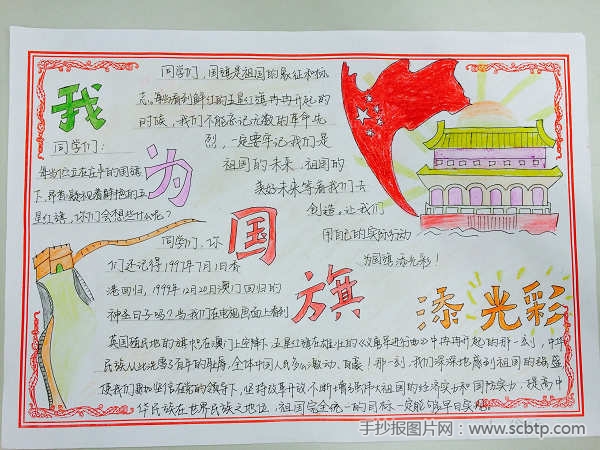 我为国旗添光彩
同学们：
每当你立在庄严的国旗
下，昂首凝视着鲜艳的五
星红旗，你们会想些什么呢？
同学们，你
们还记得1997年7月1日香
港回归，1999年12月20日澳门回归的
神圣日子吗？当我们在电视画面上看到
英国殖民地的旗帜在澳门上空降下，五星红旗在雄壮的《义勇军进行曲》中冉冉升起的那一刻，中华
民族从此洗雪了百年的耻辱，全体中国人民多么激动、自豪！那一刻，我们深深地感到祖国的强盛
使我们更加坚信在党的领导下，坚持改革开放，不断增强伟大祖国的经济实力和国防实力，提高中
华民族在世界民族之地位，祖国完全统一的目标一定能够早日实现。
同学们，国旗是祖国的象征和标
志。每当看到鲜红的五星红旗冉冉升起的
时候，我们不能忘记无数的革命先
烈，一定要牢记我们是
祖国的未来，祖国的
美好未来等着我们去
创造。让我们
用自己的实际行动
为国旗添光彩！
手抄报图片网·www.scbtp.com